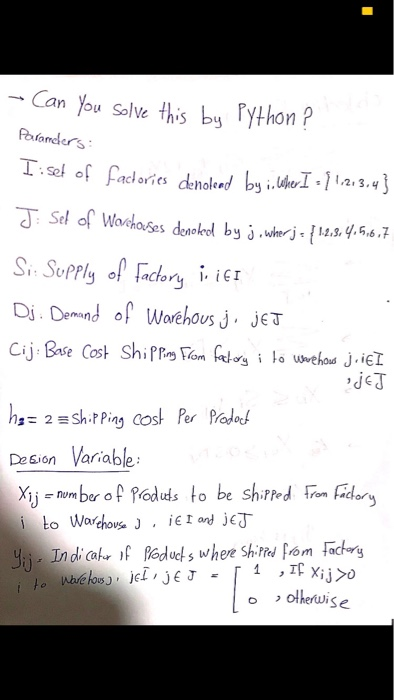 → Can you solve this by Python?
Parameters:
I: set of factories denoted by i. wher I = {1,2,3,4}
J: Set of Warehouses denoted by j. wher j = {1,2,3,4,5,6,7
Si: Supply of factory i. i∈I
Dj. Demand of Warehous j. j∈J
Cij: Base Cost Shipping From factory i to warehous j. i∈I
, j∈J
h = 2 ≡ Shipping cost Per Product
Desion Variable:
Xij = number of Products to be Shipped From Factory
i to Warehouse J , i∈I and j∈J
Yij = Indicator if Products where Shipped from Factory
i to Warehous j, j∈I, j∈J = [ 1 , If Xij>0
0 , otherwise